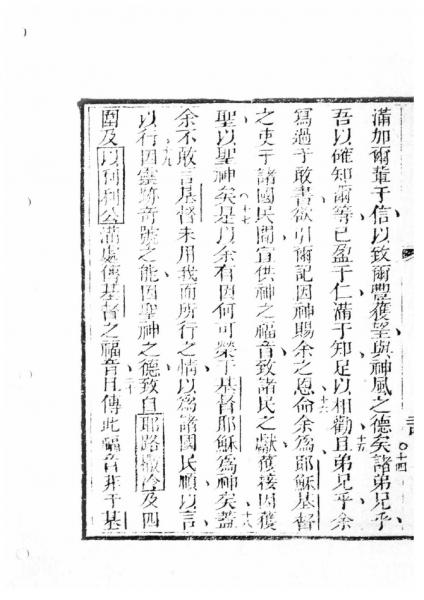 滿加爾輩于信以致爾豐獲望與神風之德矣諸弟兄乎
十四
吾以確知爾等已盈于仁滿于知足以相勸且弟兄乎余
十五
寫過于敢書欲引爾記因神賜余之恩命余為耶穌基督
十六
之吏于諸國民間宜供神之福音致諸民之獻獲接因獲
聖以聖神矣是以余有因何可榮于基督耶穌為神矣蓋
十七
十八
余不敢言基督未用我而所行之情以為諸國民順以言
以行因靈跡奇號之能因聖神之德致自耶路撒冷及四
十九
圍及以利利公滿處傳基督之福音且傳此福音非于基
二十